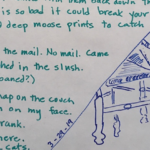 them back down th
is so bad it could break your
d deep moose prints to catch
the mail. No mail. Came
hed in the slush.
oaned?)
nap on the couch
n on my face.
rank.
here.
cats.
3-29-19
Long